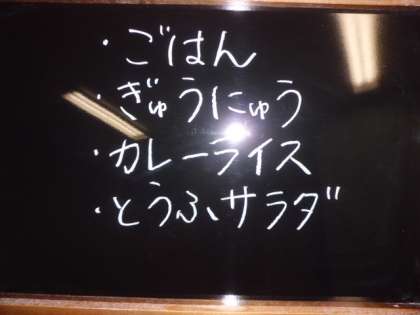 ・ごはん
・ぎゅうにゅう
・カレーライス
・とうふサラダ